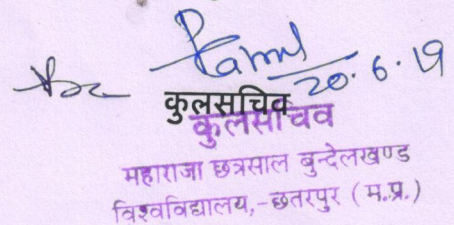 20.6.19
कुलसचिव
कुलसचिव
महाराजा छत्रसाल बुन्देलखण्ड
विश्वविद्यालय,-छतरपुर (म.प्र.)